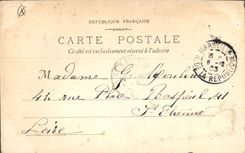 RÉPUBLIQUE FRANÇAISE
CARTE POSTALE
Ce côté est exclusivement réservé à l'adresse
MARSEILLE
DE LA RÉPUBLIQUE
Madame G.
44 rue Place Raspail 44
St Etienne
Loire